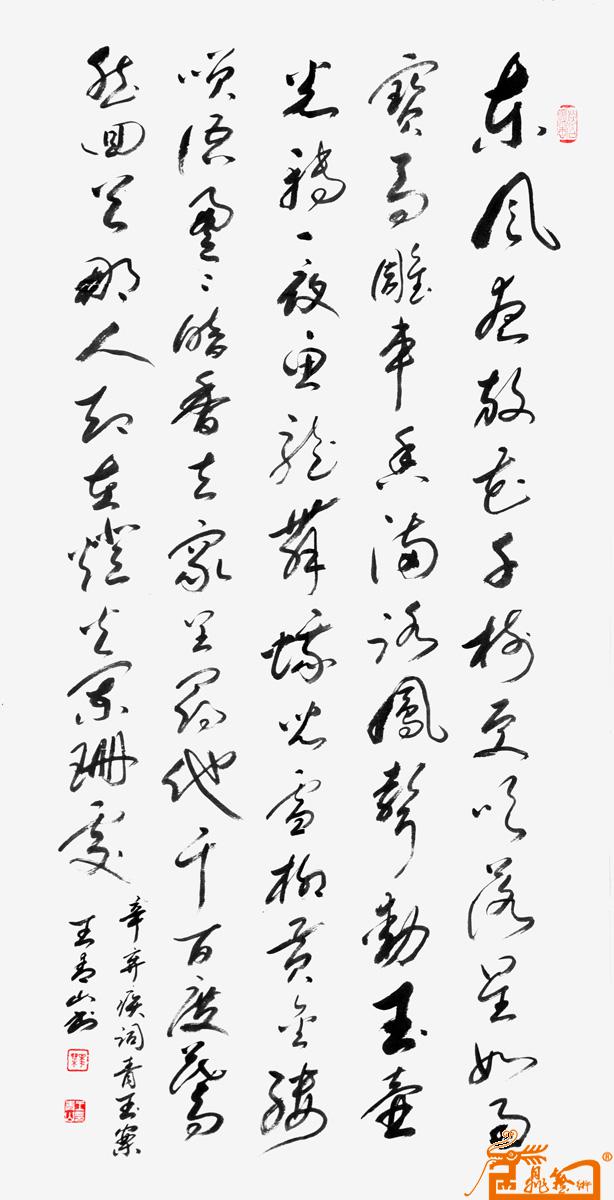 东风夜放花千树更吹落星如雨
宝马雕车香满路凤声动玉壶
光转一夜鱼龙舞蛾儿雪柳黄金缕
笑语盈々暗香去众里寻他千百度蓦
然回首那人却在灯火阑珊处
辛弃疾词青玉案
王青山书